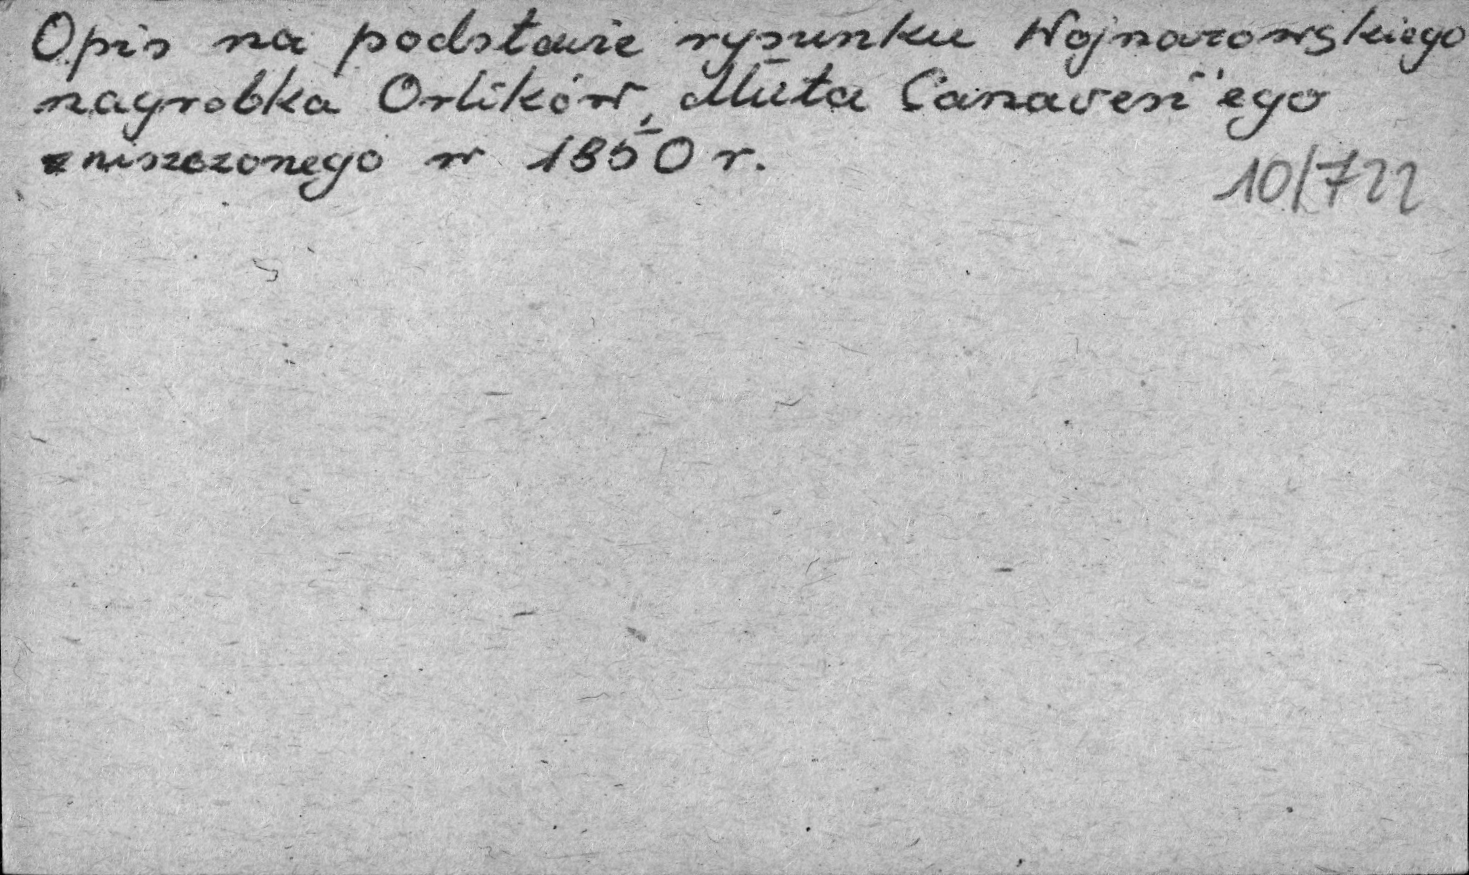 Opis na podstawie rysunku Wojnarowskiego
nagrobka Orlików, dłuta Canavesi'ego
zniszczonego w 1850 r.
10/722